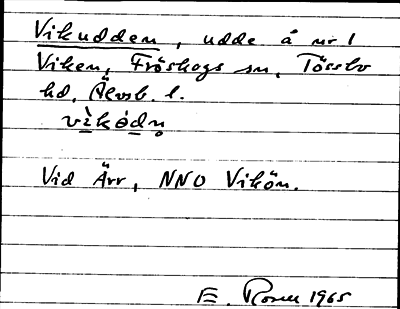 Vikudden, udde å nr 1
Viken, Fröskogs sn, Tössbo
hd, Älvsb. l.
vìkódn
Vid Ärr, NNO Vikön.
E. Rosell 1965